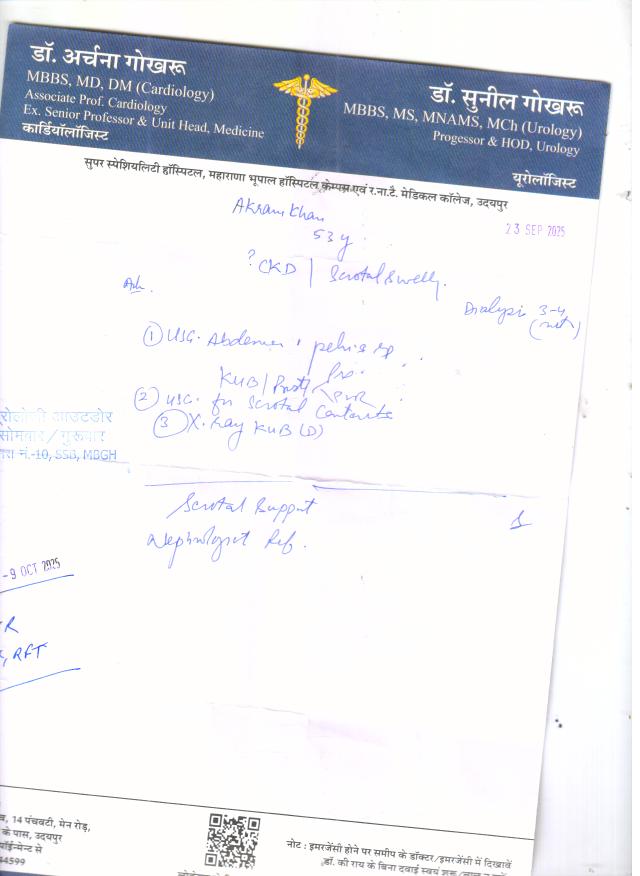 डॉ. अर्चना गोखरू
MBBS, MD, DM (Cardiology)
Associate Prof. Cardiology
Ex. Senior Professor & Unit Head, Medicine
कार्डियॉलॉजिस्ट
डॉ. सुनील गोखरू
MBBS, MS, MNAMS, MCh (Urology)
Progessor & HOD, Urology
यूरोलॉजिस्ट
सुपर स्पेशियलिटी हॉस्पिटल, महाराणा भूपाल हॉस्पिटल केम्पस एवं र.ना.टै. मेडिकल कॉलेज, उदयपुर
Akram Khan
53 y.
23 SEP 2025
? CKD | Scrotal Swelly.
Dialysis 3-4
Adv.
① USG. Abdomen, pelvis
KUB / Prost
PVR
② USG. for Scrotal Contents
③ X-ray KUB (D)
रोलोजी आउटडोर
सोमवार / गुरूवार
नं.-10, SSB, MBGH
Scrotal Support
Nephrologist Ref.
-9 OCT 2025
R
, RFT
, 14 पंचवटी, मेन रोड़,
के पास, उदयपुर
पॉईन्मेन्ट से
44599
नोट : इमरजेंसी होने पर समीप के डॉक्टर/इमरजेंसी में दिखावें
डॉ. की राय के बिना दवाई स्वयं शुरू